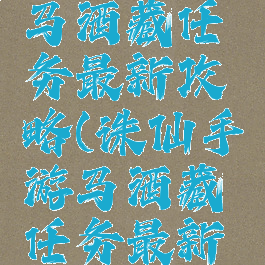 马酒藏任
务最新攻
略(诛仙手
游马酒藏
任务最新